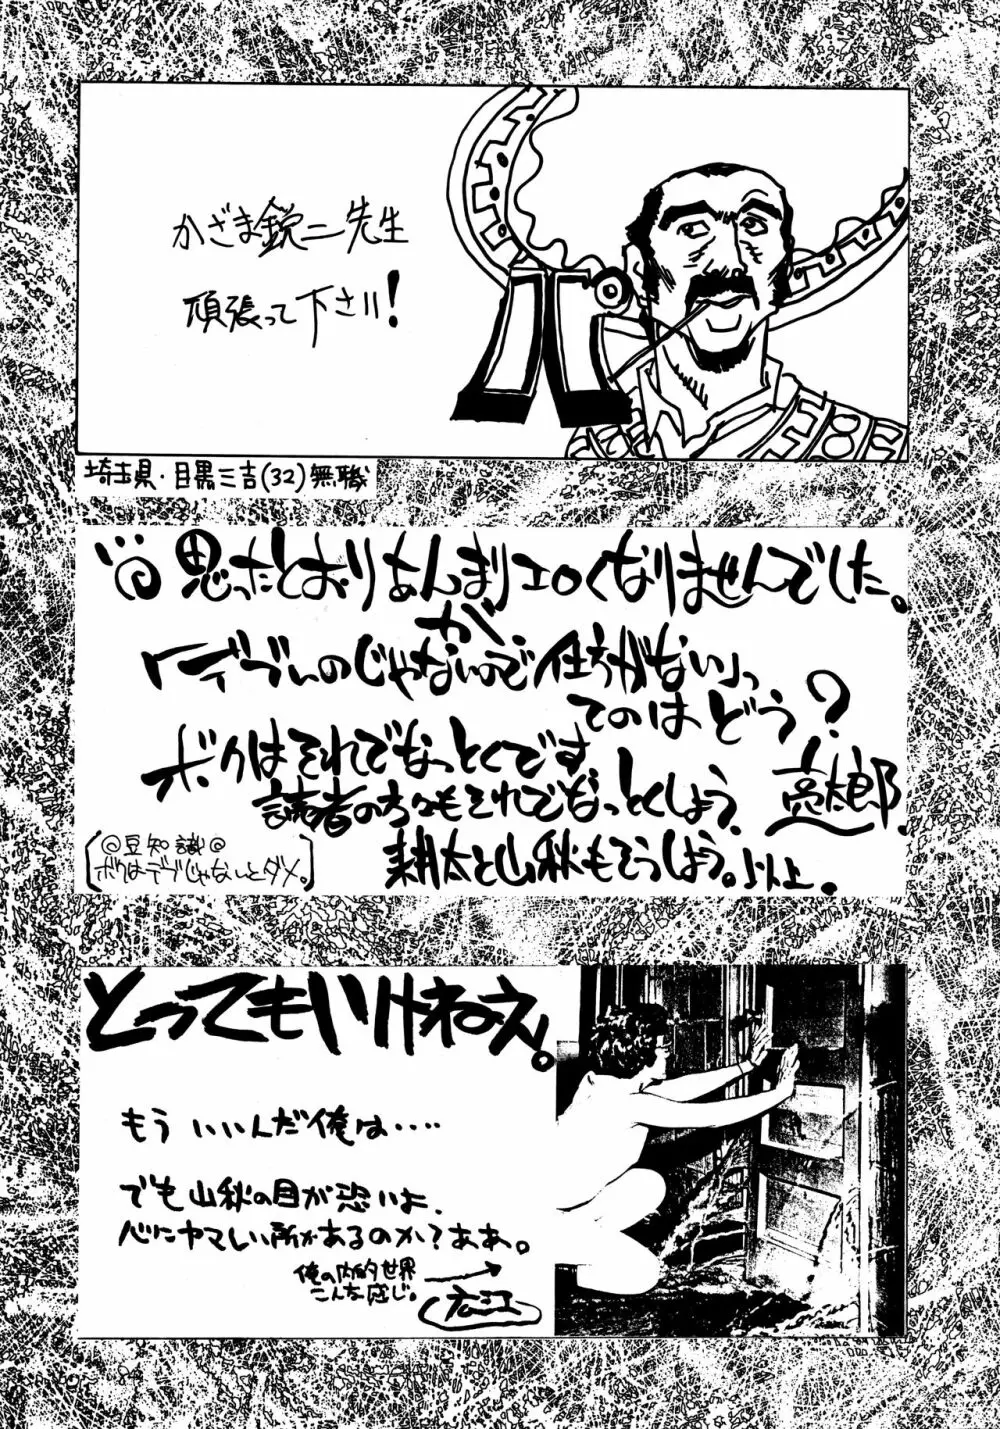 かざま鋭二先生
頑張って下さい!
埼玉県・目黒三吉(32)無職
思ったとおりあんまりエロくなりませんでした。
が
「デブいのじゃないので仕方がない」っ
てのは どう?
ボクはそれでなっとくです
読者の方々もそれでなっとくしよう。
亮太郎
耕太と山秋もそうしよう。以上。
◎豆知識◎
ボクはデブじゃないとダメ。
とってもいけねえ。
もう いいんだ俺は‥‥
でも山秋の目が恐いよ。
心にヤマしい所があるのか?ああ。
俺の内的世界
こんな感じ。
広江